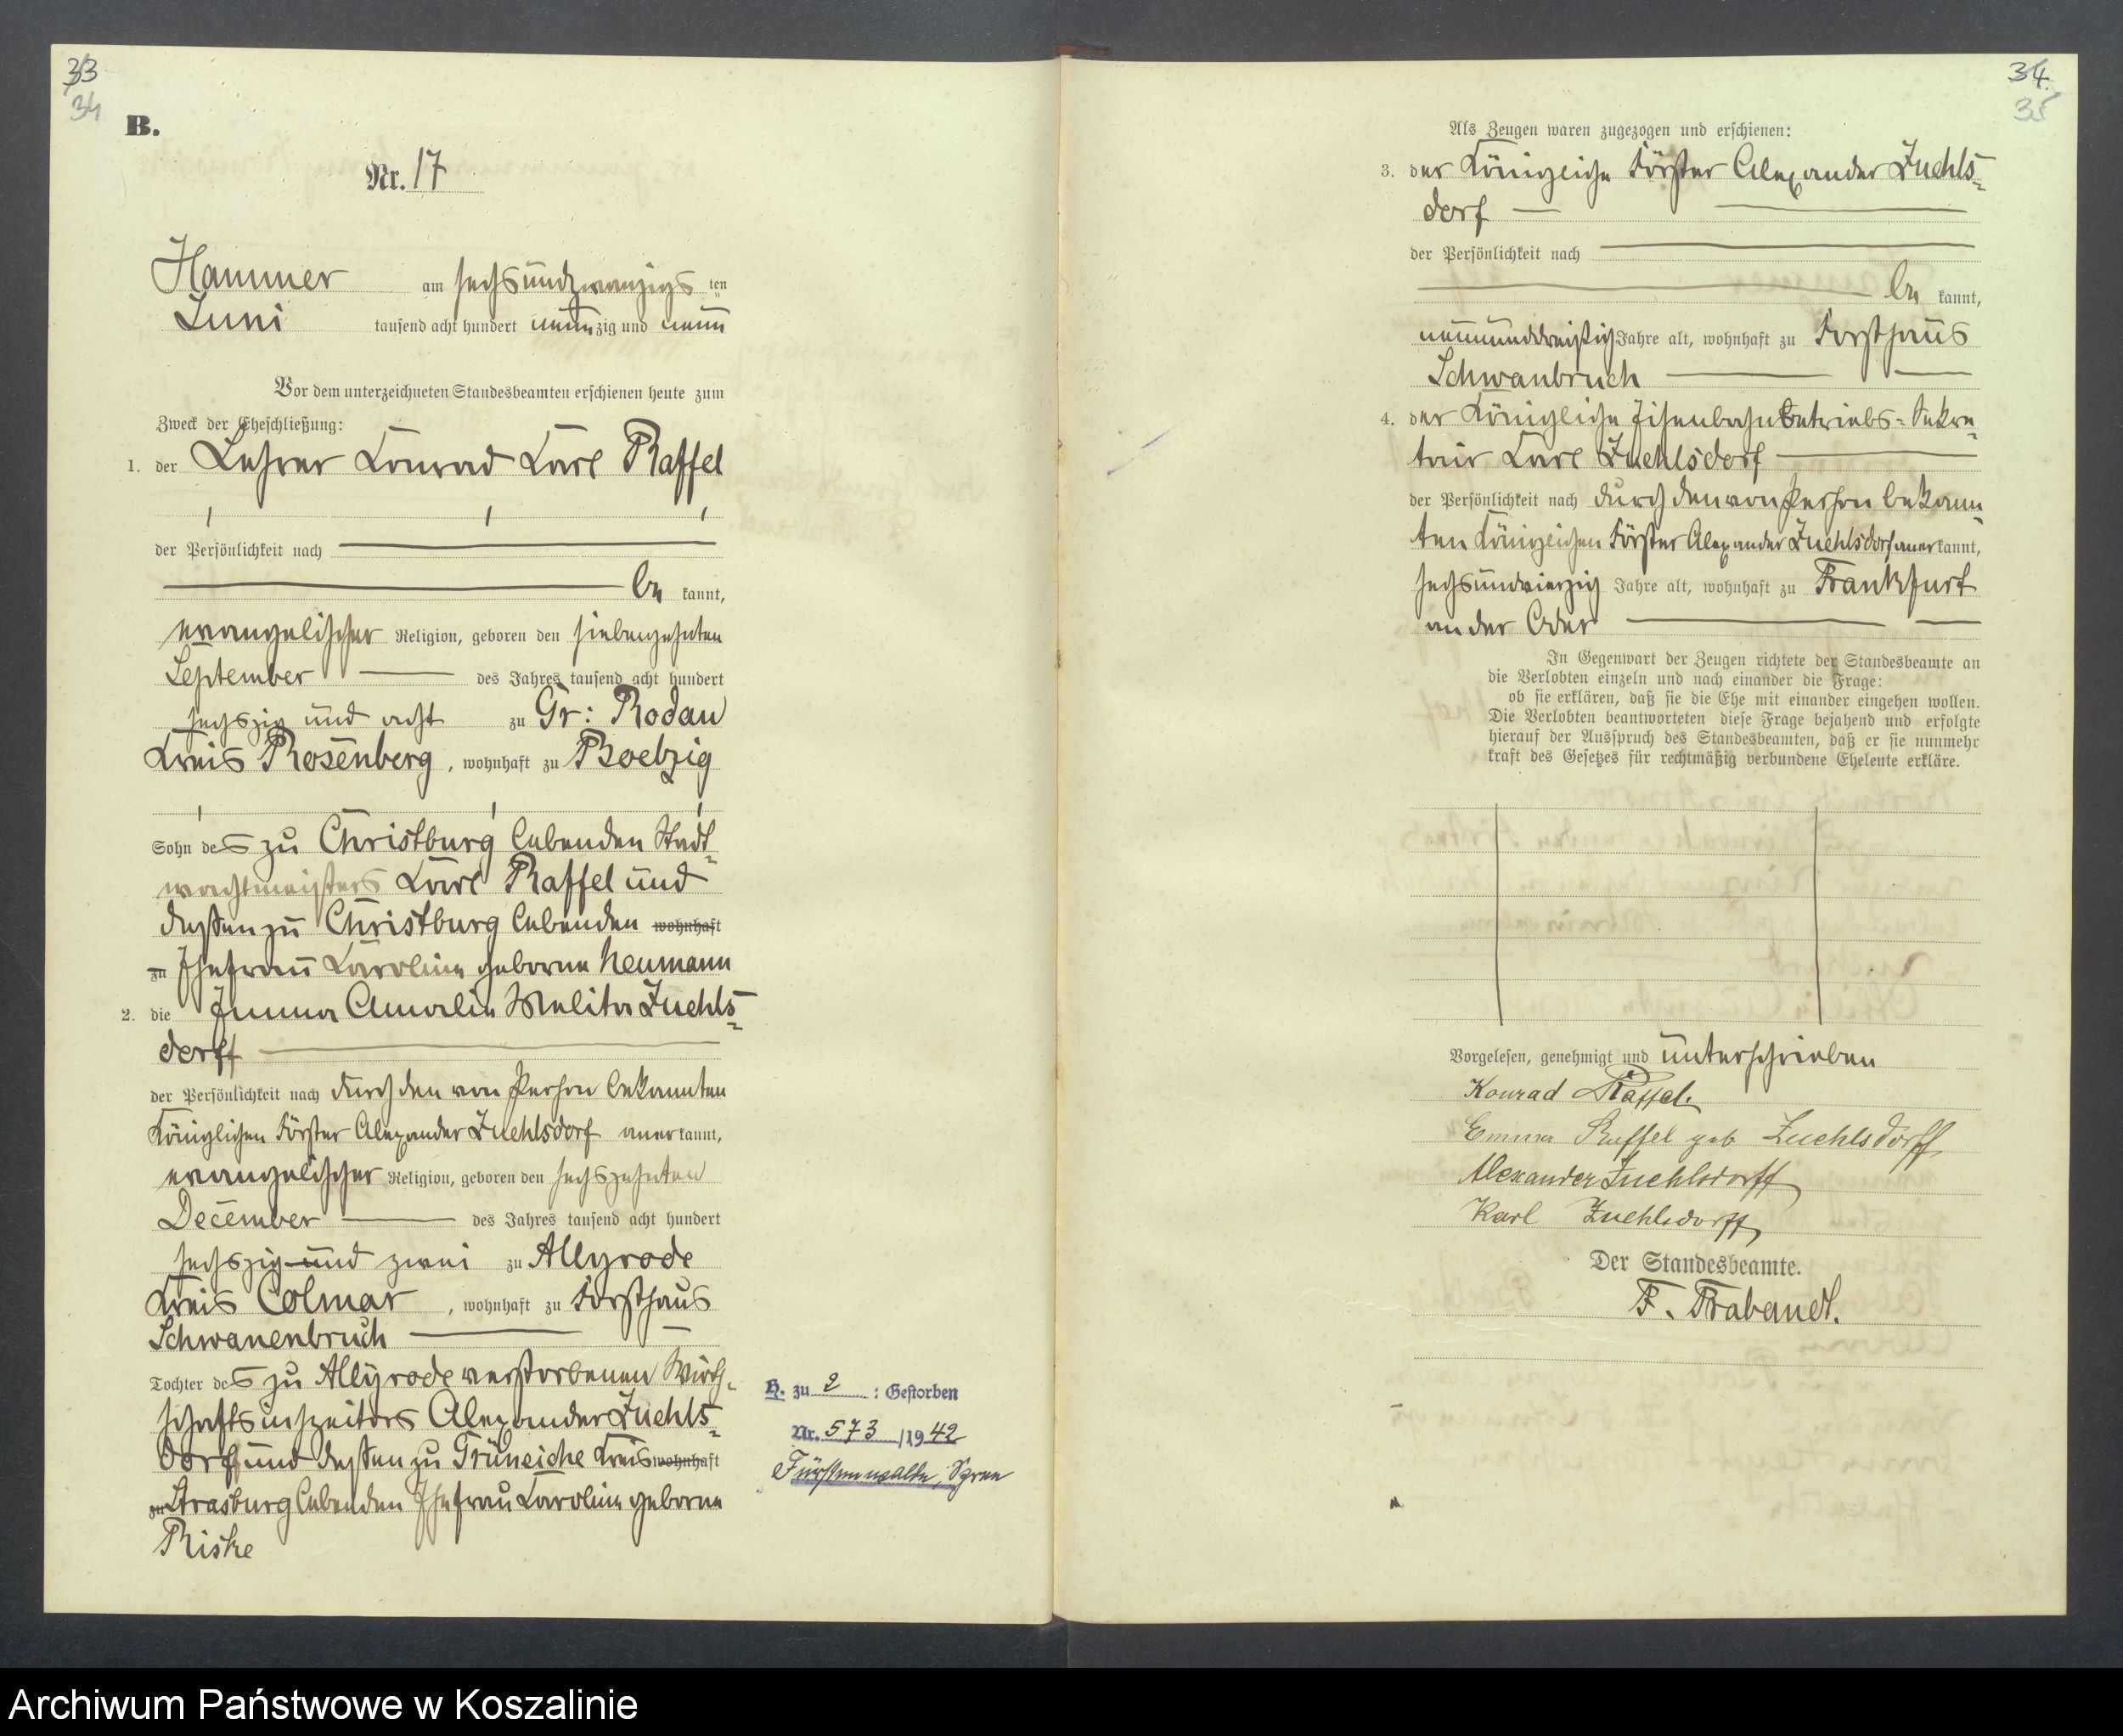 33
34
B.
Nr. 17
Hammer am sechsundzwanzigsten
Juni tausend acht hundert neunzig und neun
Vor dem unterzeichneten Standesbeamten erschienen heute zum
Zweck der Eheschließung:
1. der Lehrer Konrad Karl Raffel
der Persönlichkeit nach
be kannt,
evangelischer Religion, geboren den siebenzehnten
September des Jahres tausend acht hundert
sechszig und acht zu Gr: Rodau
Kreis Rosenberg, wohnhaft zu Roebzig
Sohn des zu Christburg lebenden Stadt-
wachtmeisters Karl Raffel und
dessen zu Christburg lebenden wohnhaft
zu Ehefrau Karoline geborne Neumann
2. die Emma Amalie Melita Zuehls-
dorff
der Persönlichkeit nach durch den von Person bekannten
Königlichen Förster Alexander Zuehlsdorf anerkannt,
evangelischer Religion, geboren den sechszehnten
December des Jahres tausend acht hundert
sechszig und zwei zu Allyrode
Kreis Colmar, wohnhaft zu Forsthaus
Schwanenbruch
Tochter des zu Allyrode verstorbenen Wirth-
schaftsinspektors Alexander Zuehls-
dorff und dessen zu Grüneiche Kreis wohnhaft
zu Strasburg lebenden Ehefrau Karoline geborne
Riske
H. zu 2 : Gestorben
Nr. 573 /1942
Fürstenwalde, Spree
34.
35
Als Zeugen waren zugezogen und erschienen:
3. der Königliche Förster Alexander Zuehls-
dorf
der Persönlichkeit nach
be kannt,
neununddreißig Jahre alt, wohnhaft zu Forsthaus
Schwanbruch
4. der Königliche Eisenbahnbetriebs-Sekre-
tair Karl Zuehlsdorf
der Persönlichkeit nach durch den von Person bekann-
ten Königlichen Förster Alexander Zuehlsdorf anerkannt,
sechsundvierzig Jahre alt, wohnhaft zu Frankfurt
an der Oder
In Gegenwart der Zeugen richtete der Standesbeamte an
die Verlobten einzeln und nach einander die Frage:
ob sie erklären, daß sie die Ehe mit einander eingehen wollen.
Die Verlobten beantworteten diese Frage bejahend und erfolgte
hierauf der Ausspruch des Standesbeamten, daß er sie nunmehr
kraft des Gesetzes für rechtmäßig verbundene Eheleute erkläre.
Vorgelesen, genehmigt und unterschrieben
Konrad Raffel.
Emma Raffel geb Zuehlsdorff
Alexander Zuehlsdorff
Karl Zuehlsdorff
Der Standesbeamte.
F. Trabandt.
Archiwum Państwowe w Koszalinie